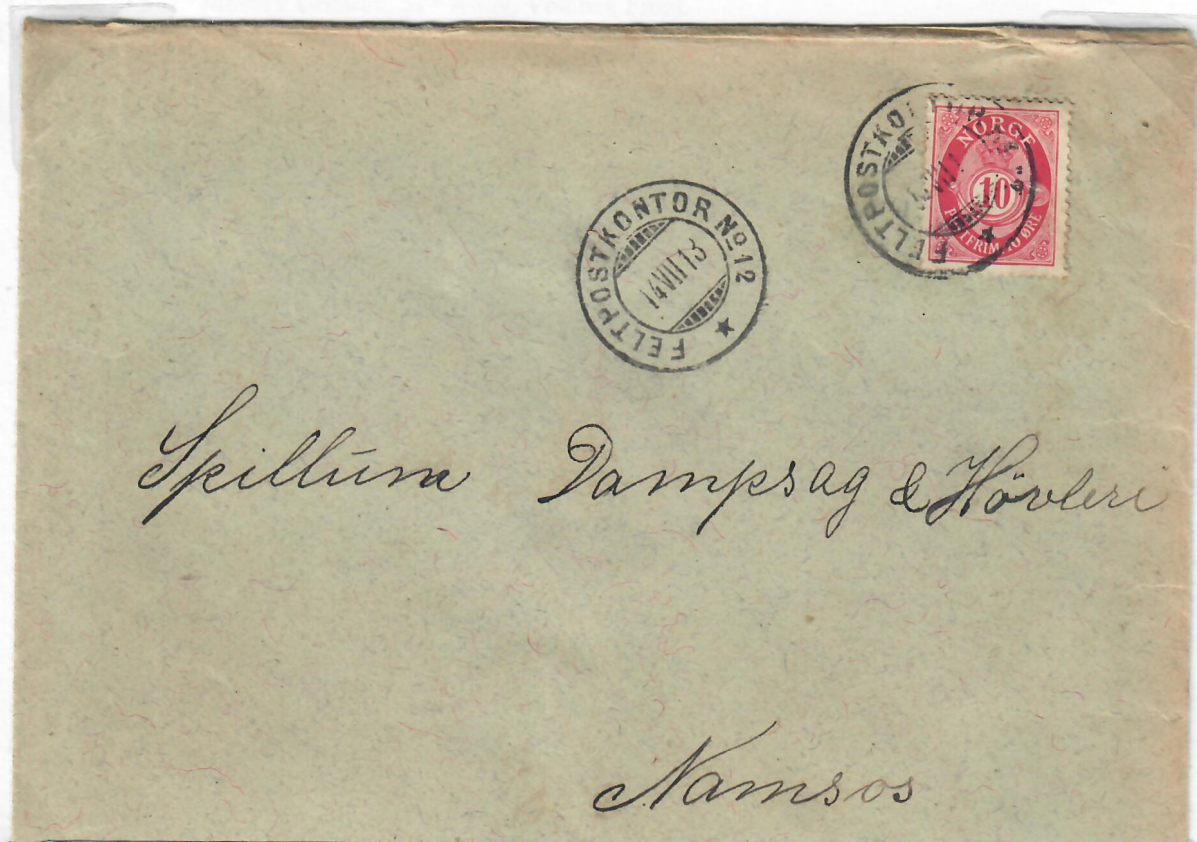 FELTPOSTKONTOR No 12
14 VII 13
FELTPOSTKONTOR
NORGE
10
POSTFRIM. 10 ØRE
Spillum Dampsag & Hövleri
Namsos